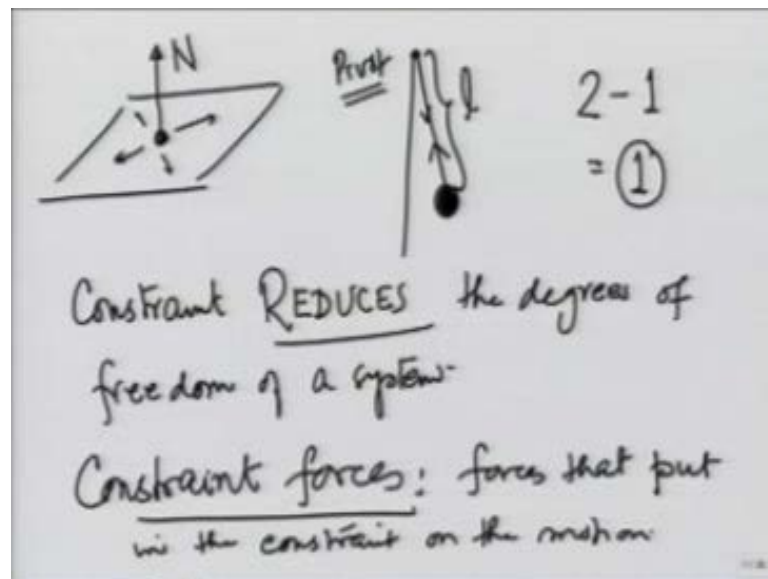 N
Pivot
l
2-1
= 1
Constraint REDUCES the degrees of
freedom of a system-
Constraint forces: forces that put
in the constraint on the motion.